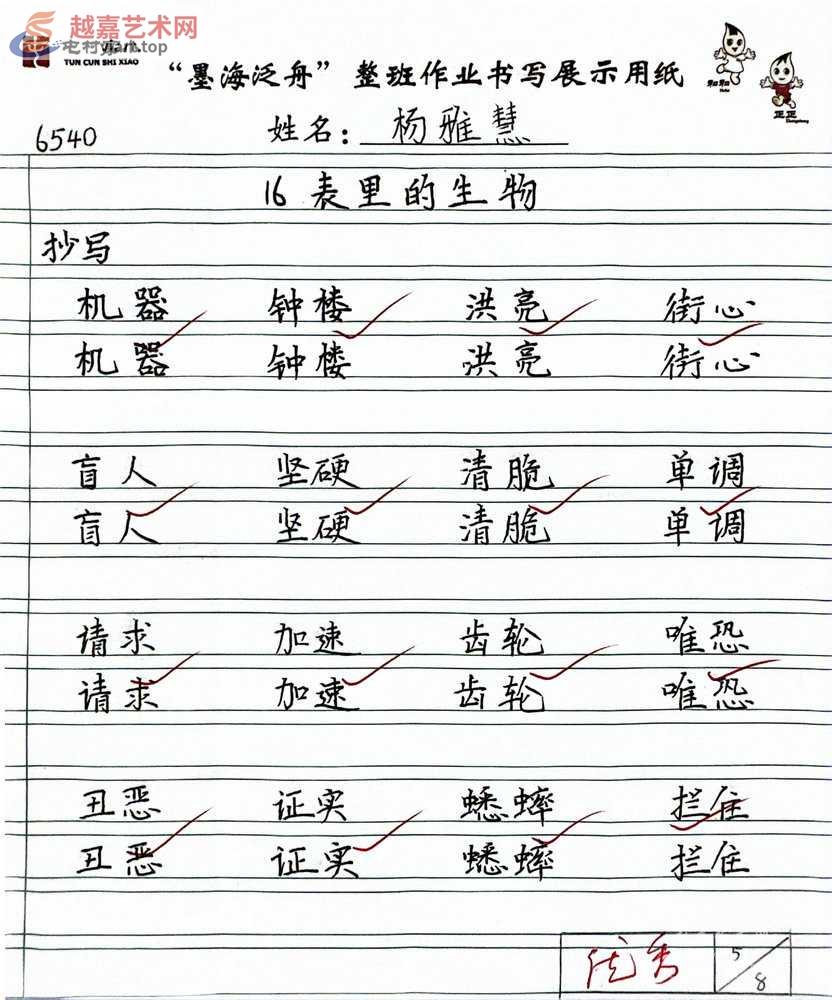 越嘉艺术网
yjart.top
TUN CUN SHI XIAO
“墨海泛舟”整班作业书写展示用纸
和和
正正
6540
姓名：杨雅慧
16 表里的生物
抄写
机器 钟楼 洪亮 街心
机器 钟楼 洪亮 街心
盲人 坚硬 清脆 单调
盲人 坚硬 清脆 单调
请求 加速 齿轮 唯恐
请求 加速 齿轮 唯恐
丑恶 证实 蟋蟀 拦住
丑恶 证实 蟋蟀 拦住
优秀 5/8